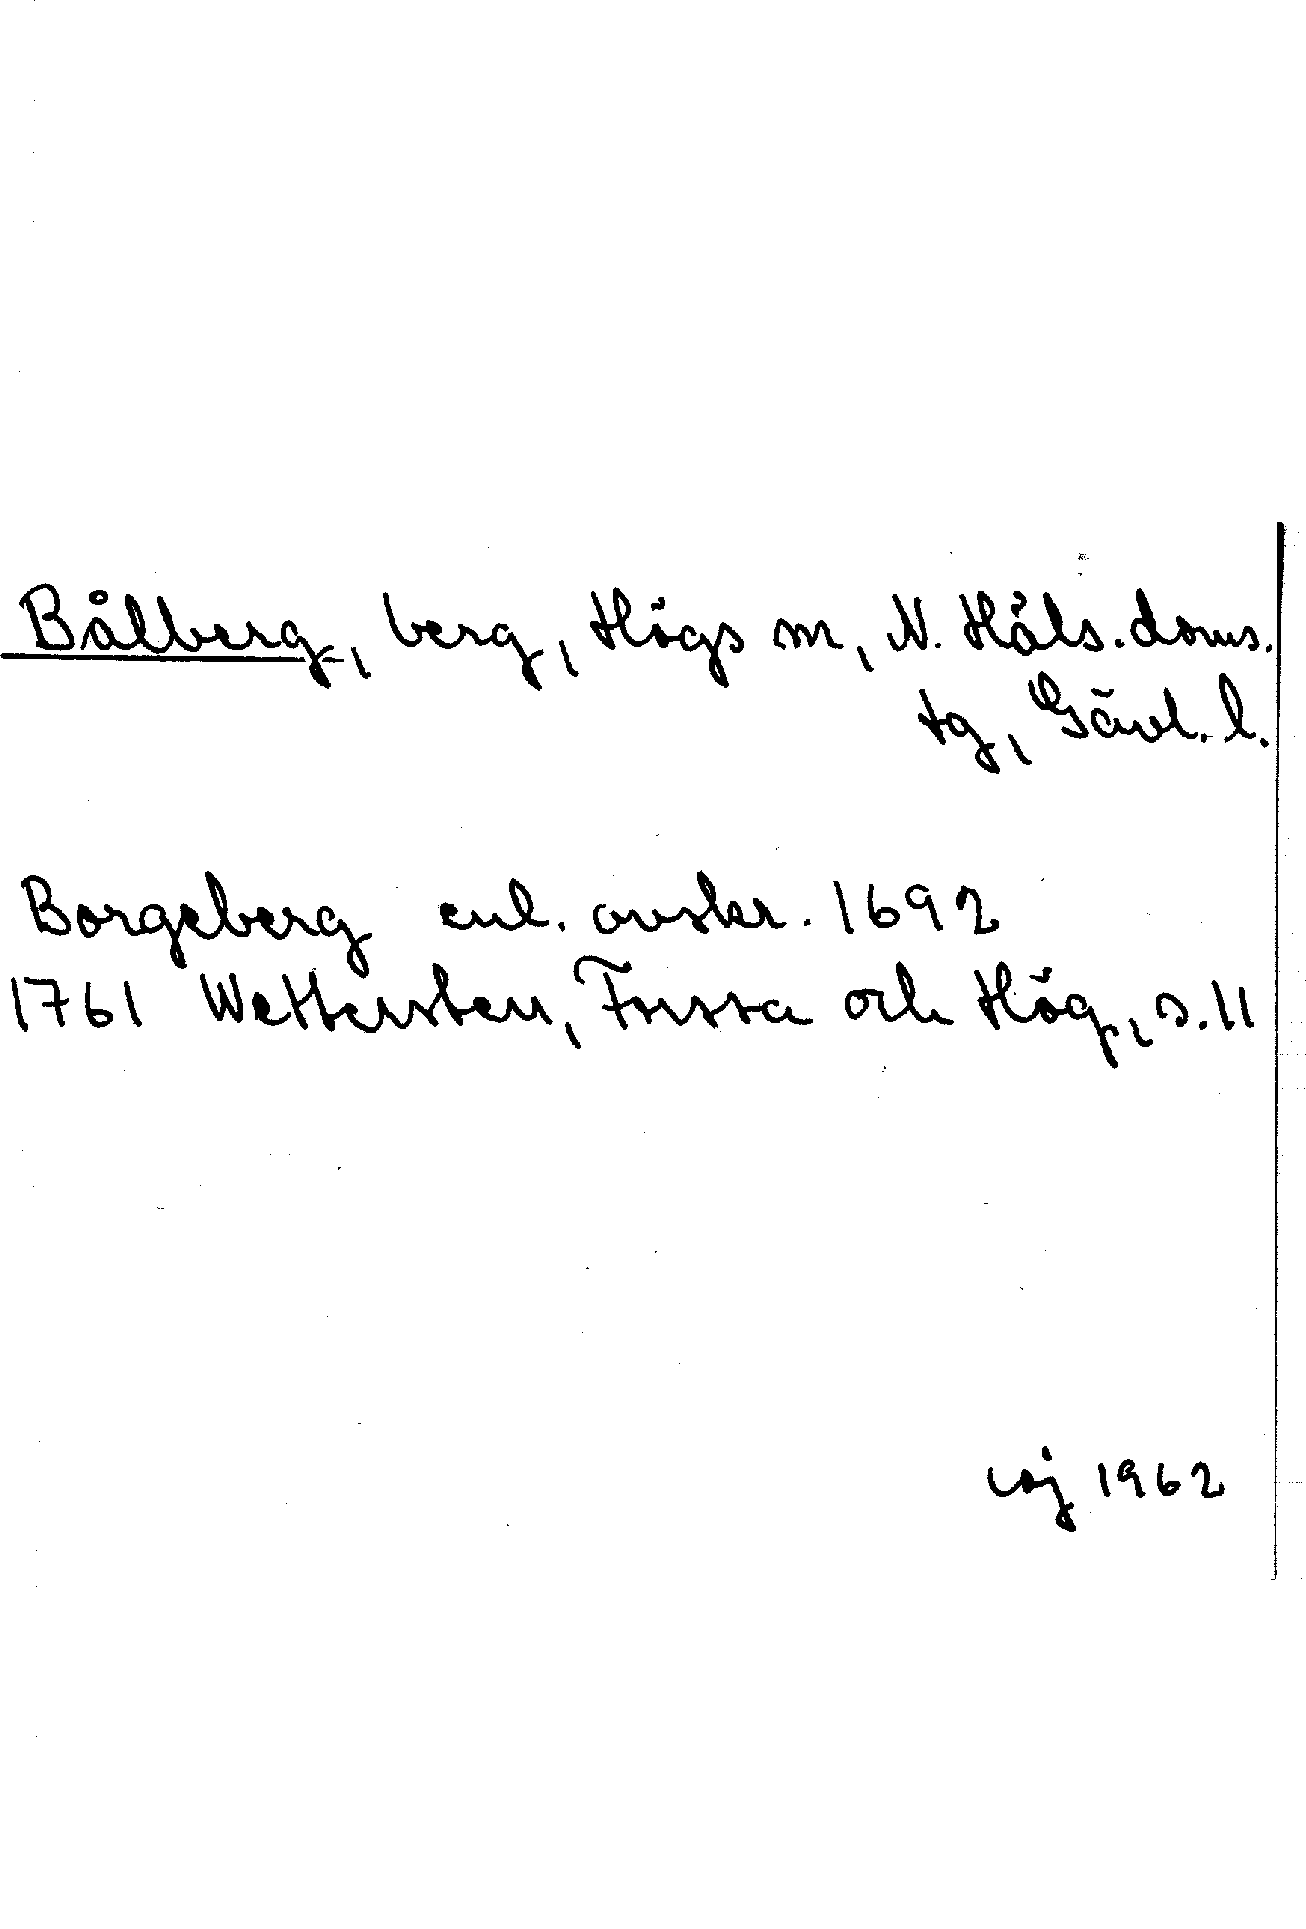 Bålberg, berg, Högs sn, N. Häls. doms.
tg, Gävl. l.
Borgeberg enl. avskr. 1692
1761 Wettersten, Forssa och Hög, s. 11
1962